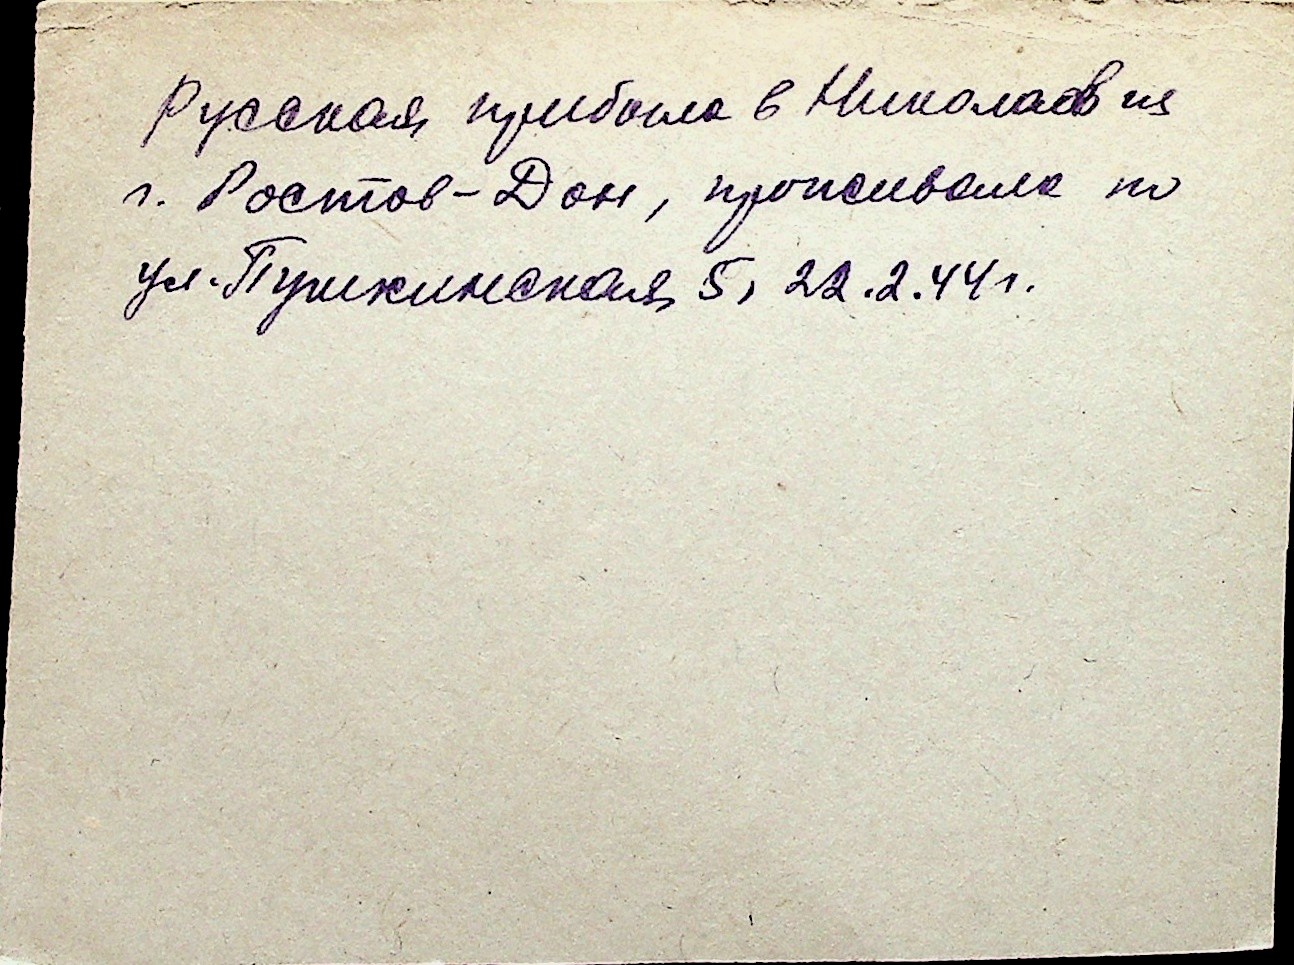 Русская прибыла в Николаев из
г. Ростов-Дон, проживала по
ул. Пушкинская 5, 22.2.44г.